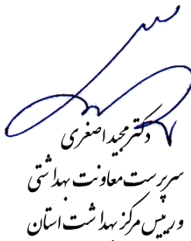 دکتر مجید اصغری
سرپرست معاونت بهداشتی
و رییس مرکز بهداشت استان